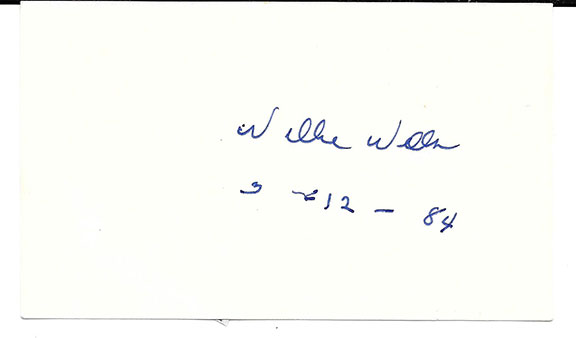 Willie Wells
3 - 12 - 84